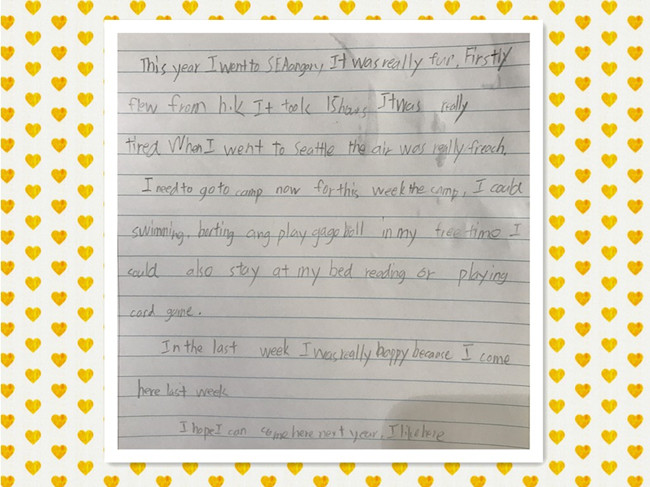 This year I went to SEAangny, It was really fun, Firstly
flew from h.k It took 15hours It was really
tired When I went to Seattle the air was really freach.
I need to go to camp now for this week the camp, I could
swimming, borting ang play gaga boll in my free time I
could also stay at my bed reading or playing
card game.
In the last week I was really happy because I come
here last week
I hope I can come here next year, I like here